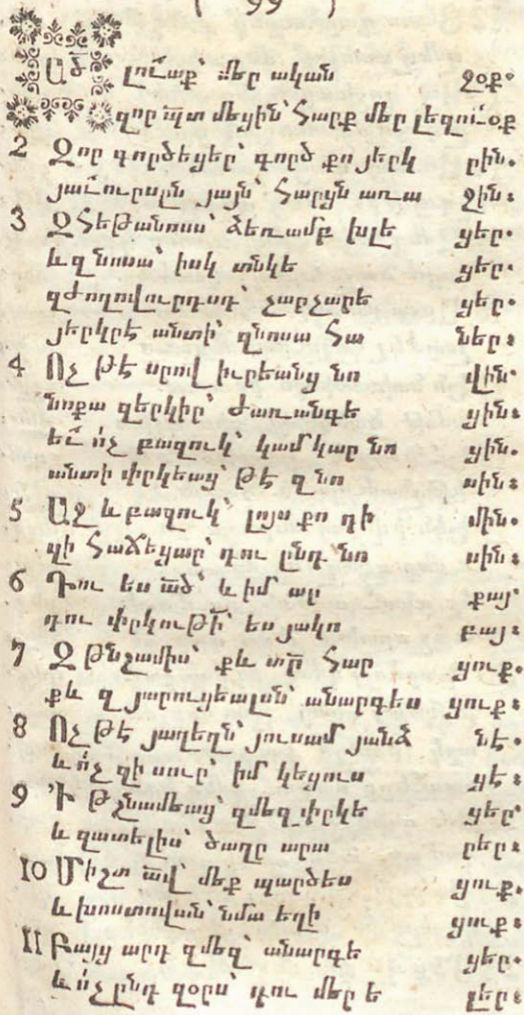 ( 99 )
Ած լուաք՝ մեր ական ջօք.
զոր պտ մեցին՝ Հարք մեր լեզուօք
2 Զոր գործեցեր՝ գործ քո յերկ րին.
յաւուրսըն յայն՝ Հարցն առա ջին։
3 ԶՀեթանոսս՝ ձեռամբ խլե ցեր.
և զնոսա՝ իսկ տնկե ցեր.
զժողովուրդսդ՝ չարչարե ցեր.
յերկրէ անտի՝ զնոսա Հա ներ։
4 Ոչ թէ սրով իւրեանց նո վին՝
նոքա զերկիր՝ ժառանգե ցին։
եւ ո՛չ բազուկ՝ կամ կար նո ցին.
անտի փրկեաց՝ թէ զնո սին։
5 Աջ և բազուկ՝ լոյս քո դի մին.
զի Հաճեցար՝ դու ընդ նո սին։
6 Դու ես ած՝ և իմ ար քայ՝
դու փրկութի՝ ես յակո բայ։
7 Զթնչամիս՝ քև տր Հար ցուք.
քև զյարուցեալսն՝ անարգես ցուք։
8 Ոչ թէ յաղեղն՝ յուսամ յանձ նէ.
և ո՛չ զի սուր՝ իմ կեցուս ցէ։
9 Ի թշնամեաց՝ զմեզ փրկե ցեր՝
և զատելիս՝ ծաղր արա րեր։
10 Միշտ ած մեք պարծես ցուք.
և խոստովան՝ նմա եղի ցուք։
11 Բայց արդ զմեզ՝ անարգե ցեր.
և ո՛չ ընդ զօրս՝ դու մեր ե լեր։